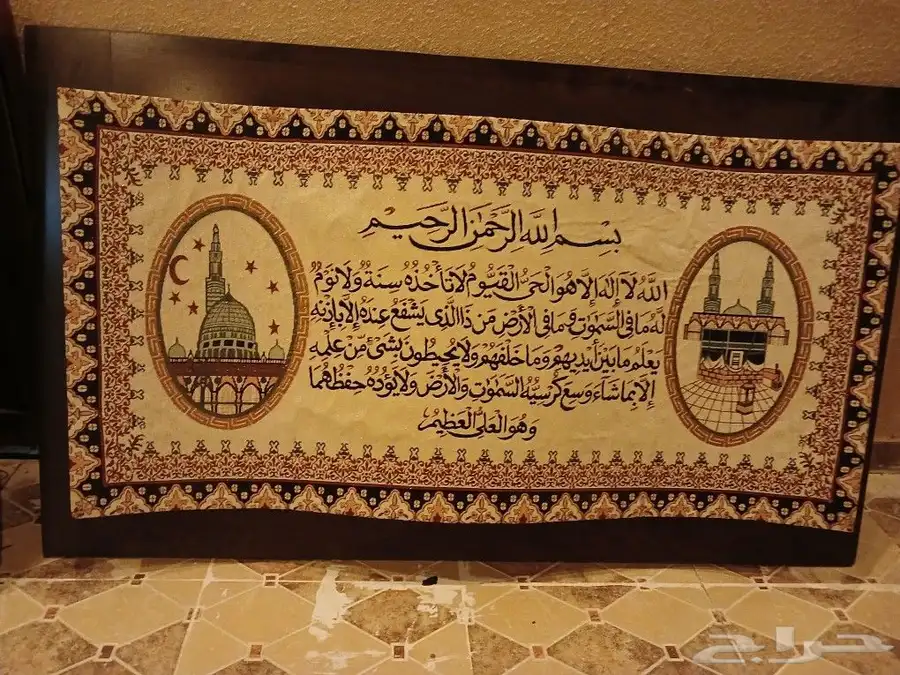 بِسْمِ اللَّهِ الرَّحْمَٰنِ الرَّحِيمِ
اللَّهُ لَآ إِلَٰهَ إِلَّا هُوَ الْحَيُّ الْقَيُّومُ لَا تَأْخُذُهُ سِنَةٌ وَلَا نَوْمٌ
لَهُ مَا فِي السَّمَٰوَاتِ وَمَا فِي الْأَرْضِ مَن ذَا الَّذِي يَشْفَعُ عِندَهُ إِلَّا بِإِذْنِهِ
يَعْلَمُ مَا بَيْنَ أَيْدِيهِمْ وَمَا خَلْفَهُمْ وَلَا يُحِيطُونَ بِشَيْءٍ مِّنْ عِلْمِهِ
إِلَّا بِمَا شَاءَ وَسِعَ كُرْسِيُّهُ السَّمَٰوَاتِ وَالْأَرْضَ وَلَا يَؤُدُهُ حِفْظُهُمَا
وَهُوَ الْعَلِيُّ الْعَظِيمُ
حراج